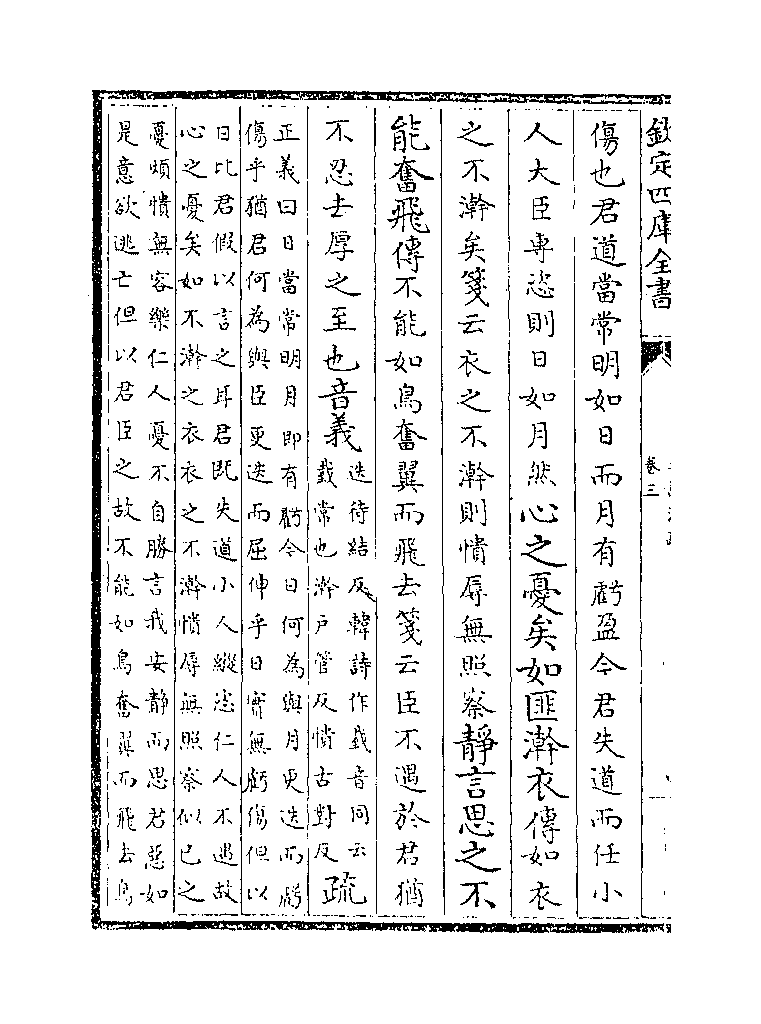 欽定四庫全書
卷三
傷也君道當常明如日而月有虧盈今君失道而任小
人大臣専恣則日如月然心之憂矣如匪澣衣傳如衣
之不澣矣箋云衣之不澣則憒辱無照察靜言思之不
能奮飛傳不能如鳥奮翼而飛去箋云臣不遇於君猶
不忍去厚之至也音義
迭待結反韓詩作䟴音同云
䟴常也澣戸管反憒古對反
疏
正義曰日當常明月即有虧今日何為與月更迭而虧
傷乎猶君何為與臣更迭而屈伸乎日實無虧傷但以
日比君假以言之耳君既失道小人縱恣仁人不遇故
心之憂矣如不澣之衣衣之不澣憒辱無照察似已之
憂煩憒無容樂仁人憂不自勝言我安靜而思君惡如
是意欲逃亡但以君臣之故不能如鳥奮翼而飛去鳥